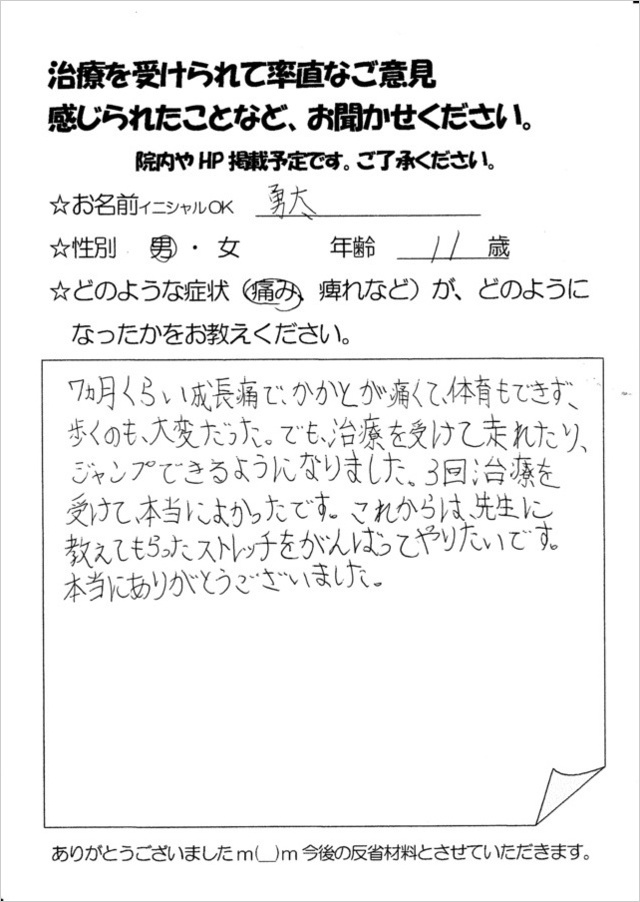 治療を受けられて率直なご意見
感じられたことなど、お聞かせください。
院内やHP掲載予定です。ご了承ください。
☆お名前イニシャルOK 勇太
☆性別 男・女 年齢 11歳
☆どのような症状(痛み、痺れなど)が、どのように
なったかをお教えください。
7ヵ月くらい成長痛で、かかとが痛くて、体育もできず、
歩くのも、大変だった。でも、治療を受けて走れたり、
ジャンプできるようになりました。3回治療を
受けて、本当によかったです。これからは、先生に
教えてもらったストレッチをがんばってやりたいです。
本当にありがとうございました。
ありがとうございましたm(__)m今後の反省材料とさせていただきます。